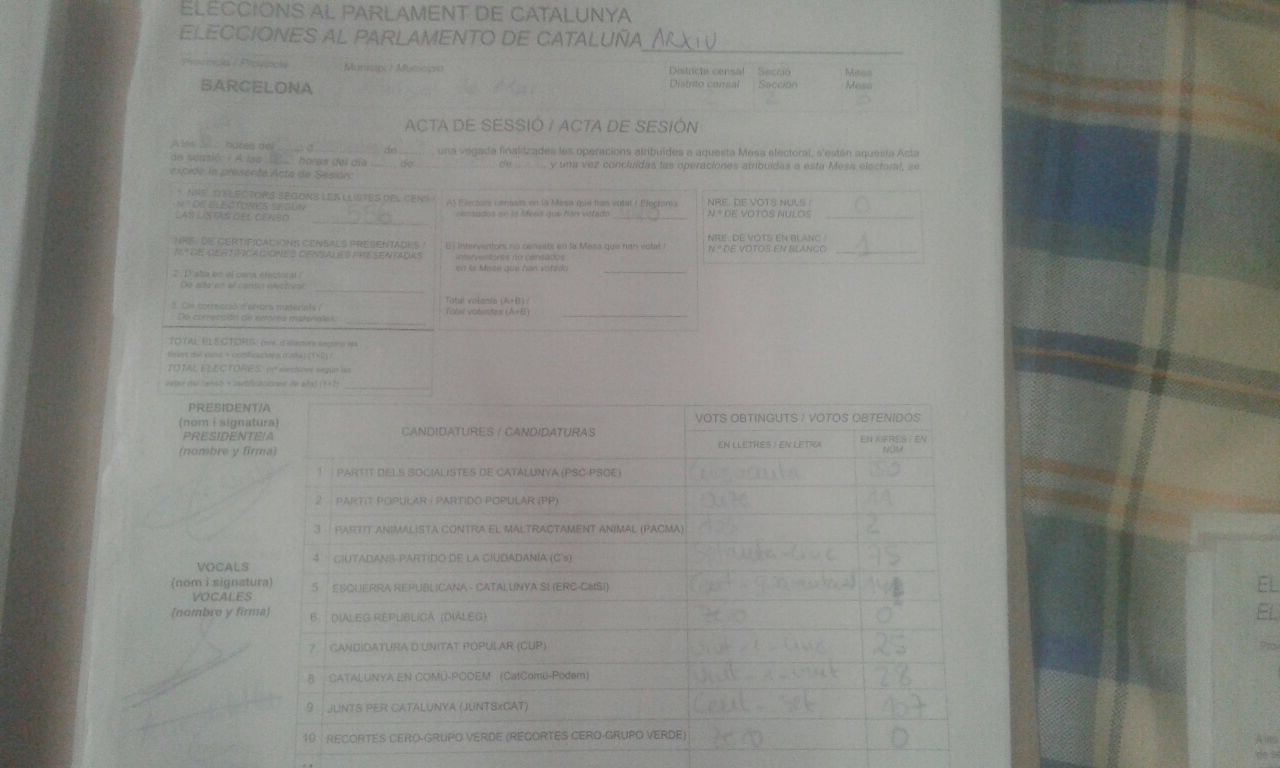 ELECCIONS AL PARLAMENT DE CATALUNYA
ELECCIONES AL PARLAMENTO DE CATALUÑA ARXIU
Província / Provincia Municipi / Municipio Districte censal Secció Mesa
Distrito censal Sección Mesa
BARCELONA 2
ACTA DE SESSIÓ / ACTA DE SESIÓN
A les hores del d de una vegada finalitzades les operacions atribuïdes a aquesta Mesa electoral, s'estén aquesta Acta
de sessió / A las horas del día de de y una vez concluidas las operaciones atribuidas a esta Mesa electoral, se
expide la presente Acta de Sesión:
1. NRE. D'ELECTORS SEGONS LES LLISTES DEL CENS /
N.º DE ELECTORES SEGÚN
LAS LISTAS DEL CENSO 556
NRE. DE CERTIFICACIONS CENSALS PRESENTADES /
N.º DE CERTIFICACIONES CENSALES PRESENTADAS
2. D'alta en el cens electoral /
De alta en el censo electoral:
3. De correcció d'errors materials /
De corrección de errores materiales:
TOTAL ELECTORS: (nre. d'electors segons les
llistes del cens + certificacions d'alta) (1+2) /
TOTAL ELECTORES: (nº electores según las
listas del censo + certificaciones de alta) (1+2)
A) Electors censats en la Mesa que han votat / Electores
censados en la Mesa que han votado
B) Interventors no censats en la Mesa que han votat /
Interventores no censados
en la Mesa que han votado
Total votants (A+B) /
Total votantes (A+B)
NRE. DE VOTS NULS /
N.º DE VOTOS NULOS 0
NRE. DE VOTS EN BLANC /
N.º DE VOTOS EN BLANCO 1
PRESIDENT/A
(nom i signatura)
PRESIDENTE/A
(nombre y firma)
VOCALS
(nom i signatura)
VOCALES
(nombre y firma)
CANDIDATURES / CANDIDATURAS VOTS OBTINGUTS / VOTOS OBTENIDOS
EN LLETRES / EN LETRA EN XIFRES / EN
NÚM
1 PARTIT DELS SOCIALISTES DE CATALUNYA (PSC-PSOE) Cinquanta 50
2 PARTIT POPULAR / PARTIDO POPULAR (PP) onze 11
3 PARTIT ANIMALISTA CONTRA EL MALTRACTAMENT ANIMAL (PACMA) dos 2
4 CIUTADANS-PARTIDO DE LA CIUDADANÍA (C's) Setanta-cinc 75
5 ESQUERRA REPUBLICANA - CATALUNYA SÍ (ERC-CatSí) Cent
6 DIÀLEG REPUBLICÀ (DIÀLEG) zero 0
7 CANDIDATURA D'UNITAT POPULAR (CUP) Vint-i-cinc 25
8 CATALUNYA EN COMÚ-PODEM (CatComú-Podem) Vint-i-vuit 28
9 JUNTS PER CATALUNYA (JUNTSxCAT) Cent-set 107
10 RECORTES CERO-GRUPO VERDE (RECORTES CERO-GRUPO VERDE) zero 0